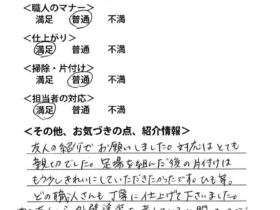 <職人のマナー>
満足 普通 不満
<仕上がり>
満足 普通 不満
<掃除・片付け>
満足 普通 不満
<担当者の対応>
満足 普通 不満
<その他、お気づきの点、紹介情報>
友人の紹介でお願いしました。対応はとても
親切でした。足場を組んだ後の片付けは
もう少しきれいにしていただきたかったです。ひも等。
どの職人さんも丁寧に仕上げて下さいました。